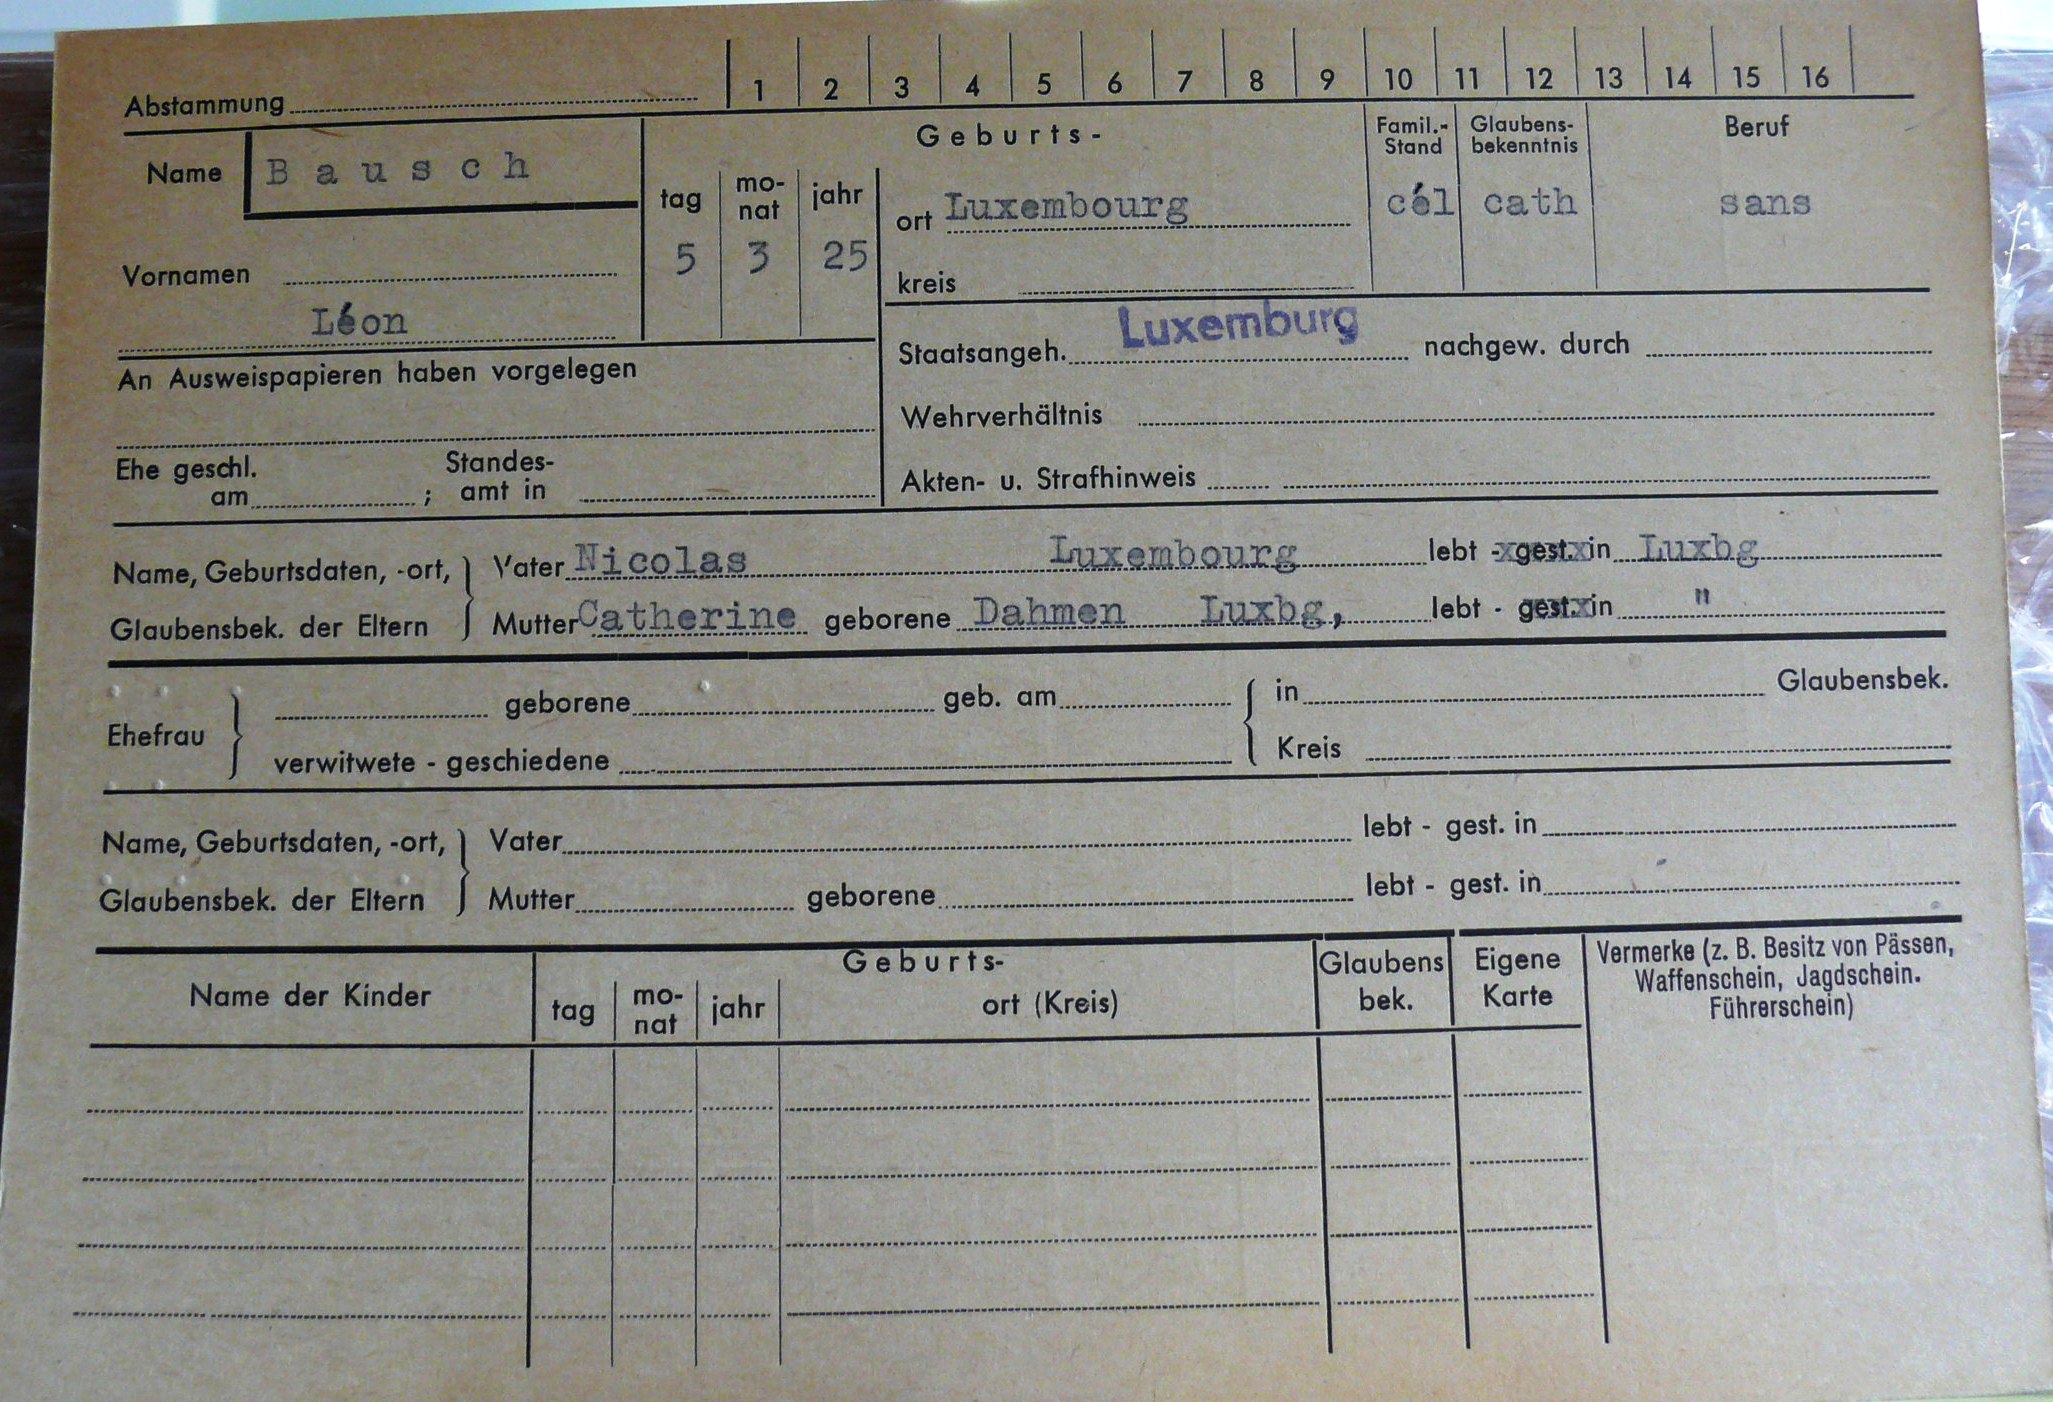 Abstammung 1 2 3 4 5 6 7 8 9 10 11 12 13 14 15 16
Name Bausch
Geburts-
Famil.-Stand Glaubens-bekenntnis Beruf
tag mo-nat jahr ort Luxembourg cél cath sans
5 3 25
Vornamen kreis
Léon
Staatsangeh. Luxemburg nachgew. durch
An Ausweispapieren haben vorgelegen
Wehrverhältnis
Ehe geschl. am ; Standes-amt in
Akten- u. Strafhinweis
Name, Geburtsdaten, -ort, Vater Nicolas Luxembourg lebt - gest. in Luxbg
Glaubensbek. der Eltern Mutter Catherine geborene Dahmen Luxbg, lebt - gest. in "
Ehefrau geborene geb. am in Glaubensbek.
verwitwete - geschiedene Kreis
Name, Geburtsdaten, -ort, Vater lebt - gest. in
Glaubensbek. der Eltern Mutter geborene lebt - gest. in
Name der Kinder Geburts- Glaubens bek. Eigene Karte
tag mo-nat jahr ort (Kreis)
Vermerke (z. B. Besitz von Pässen,
Waffenschein, Jagdschein.
Führerschein)